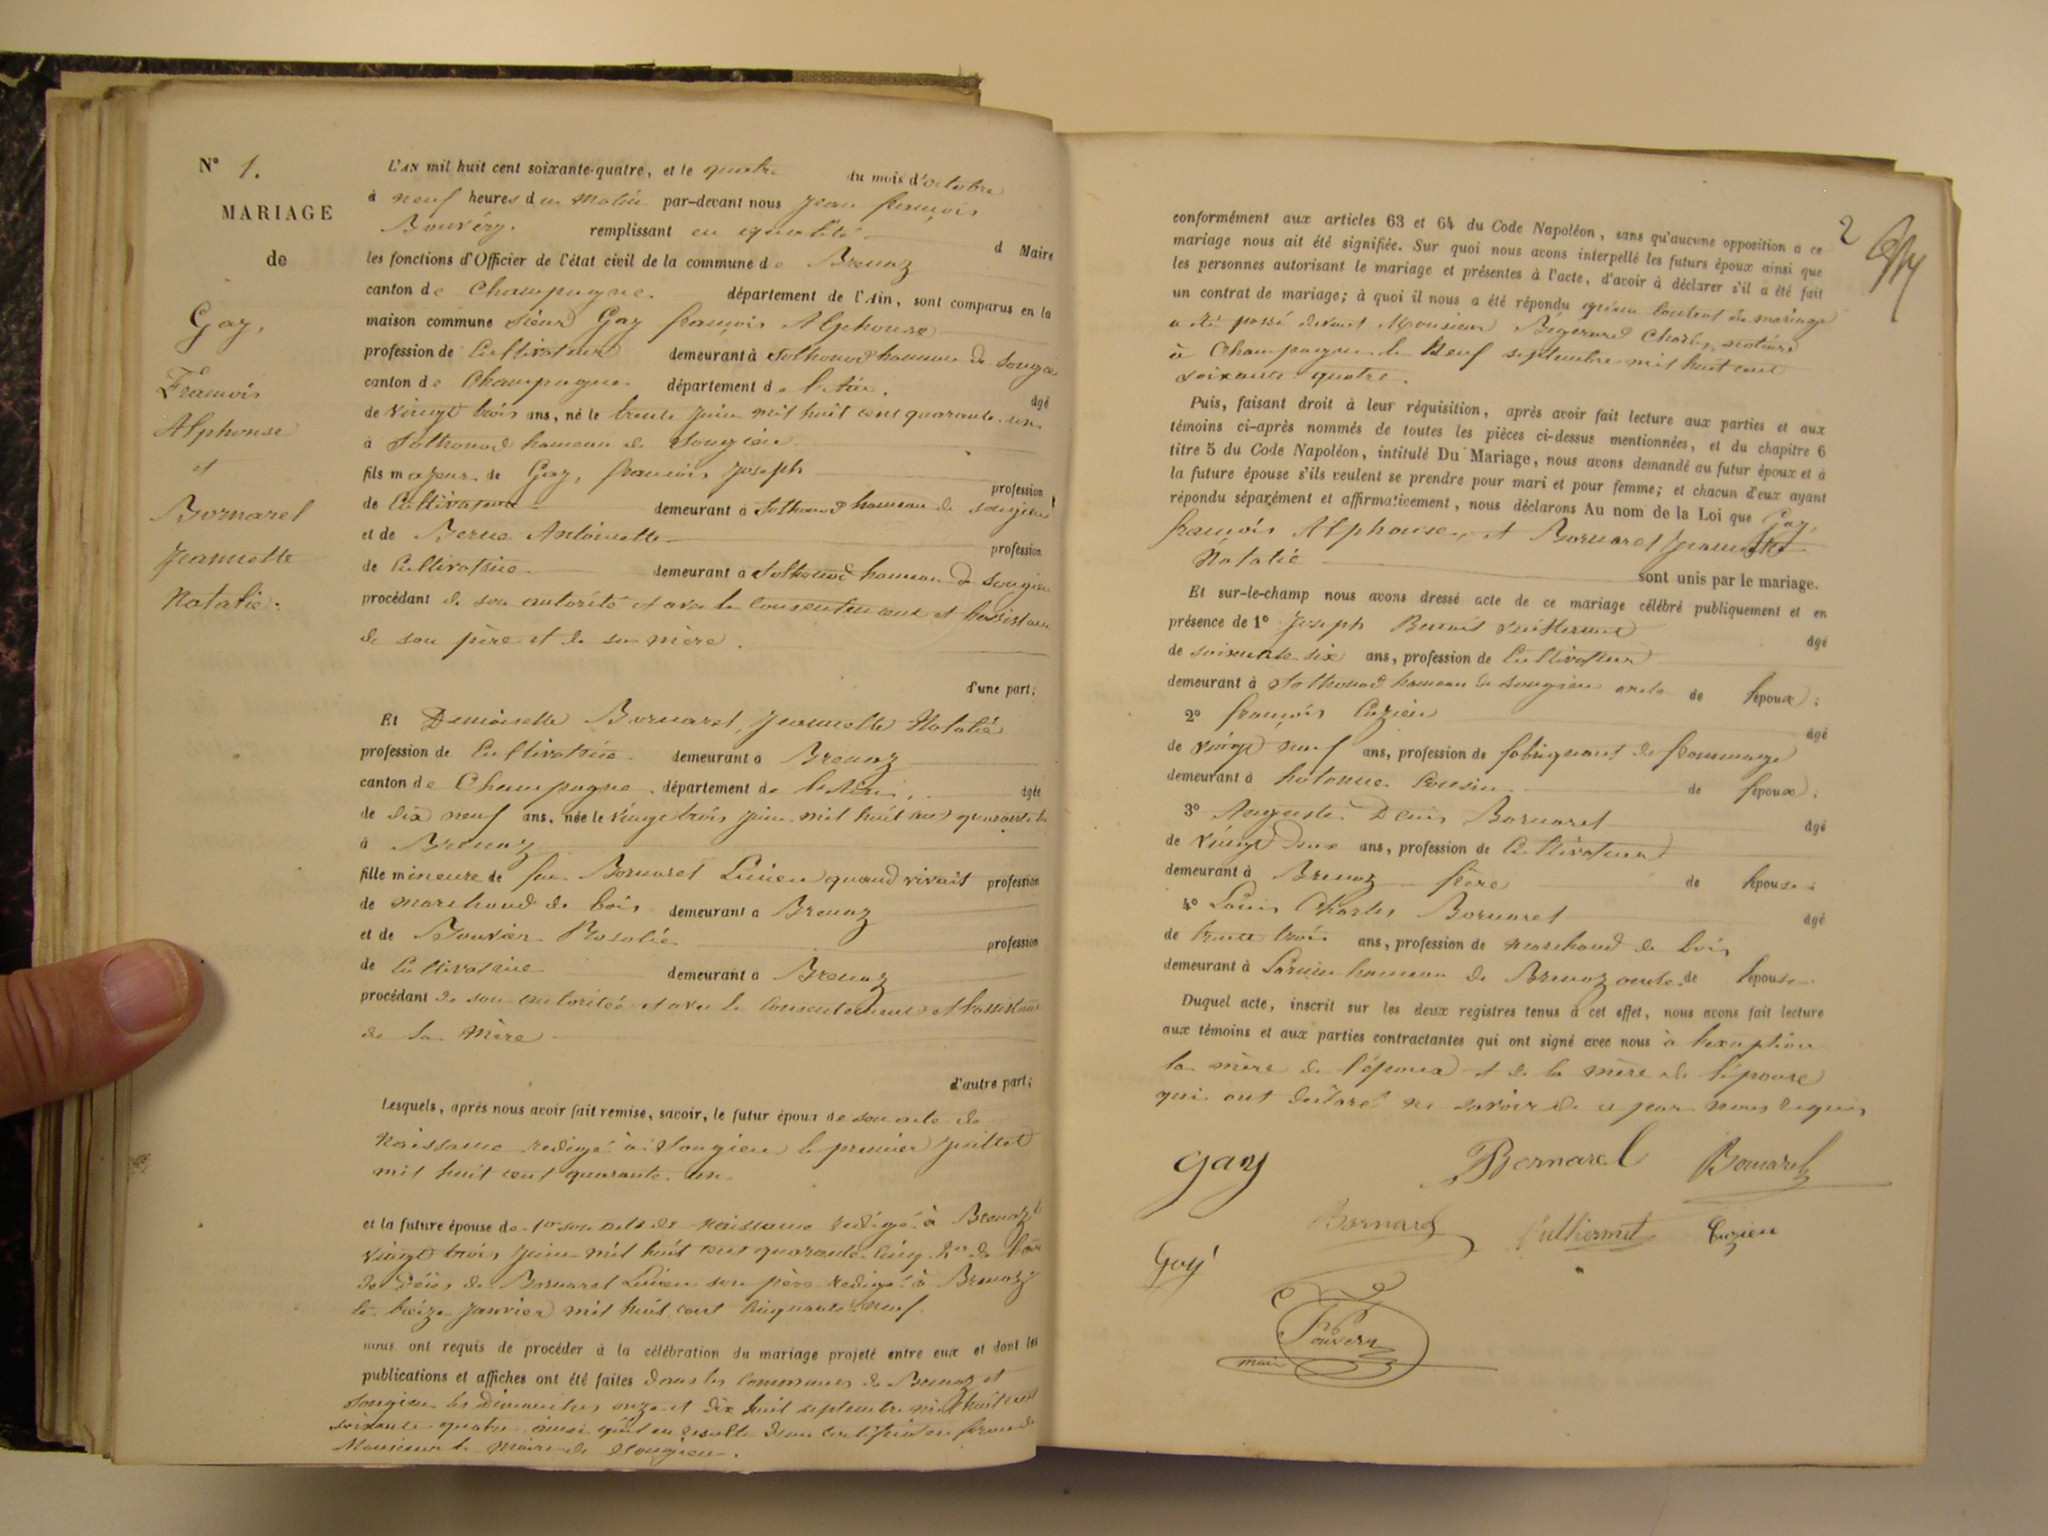 N° 1.
MARIAGE
de
Gay,
François
Alphonse
et
Bornarel
Jeannette
Natalie.
L'AN mil huit cent soixante-quatre, et le quatre du mois d'octobre
à neuf heures du matin par-devant nous Jean françois
Bouvéry. remplissant en qualité d Maire
les fonctions d'Officier de l'état civil de la commune de Brenaz
canton de Champagne. département de l'Ain, sont comparus en la
maison commune sieur Gay françois Alphonse
profession de Cultivateur demeurant à Sothonod hameau de Songieu
canton de Champagne département de l'Ain. âgé
de vingt trois ans, né le trente juin mil huit cent quarante-un
à Sothonod hameau de Songieu
fils majeur de Gay, françois Joseph profession
de Cultivateur demeurant à Sothonod hameau de Songieu
et de Berne Antoinette profession
de Cultivatrice demeurant à Sothonod hameau de Songieu
procédant de son autorité et avec le Consentement et l'assistance
de son père et de sa mère.
d'une part;
Et Demoiselle Bornarel, Jeannette Natalie
profession de Cultivatrice demeurant à Brenaz
canton de Champagne. département de l'Ain. âgée
de dix neuf ans, née le vingt trois juin mil huit cent quarante
à Brenaz
fille mineure de feu Bornarel Lucien quand vivait profession
de marchand de bois demeurant à Brenaz
et de Bouvier Rosalie profession
de Cultivatrice demeurant à Brenaz
procédant de son autoritée et avec le Consentement et l'assistance
de sa Mère
d'autre part;
Lesquels, après nous avoir fait remise, savoir, le futur époux de son acte de
Naissance redigé à Songieu le premier juillet
mil huit cent quarante-un.
et la future épouse de 1er son acte de naissance redigé à Brenaz le
vingt trois juin mil huit cent quarante-cinq 2e de
de décès de Bornarel Lucien son père redigé à Brenaz
le treize janvier mil huit cent cinquante neuf.
nous ont requis de procéder à la célébration du mariage projeté entre eux et dont les
publications et affiches ont été faites dans les communes de Brenaz et
Songieu les Dimanches onze et dix huit septembre mil huit cent
soixante quatre ainsi qu'il en résulte d'un certificat
Monsieur le maire de Songieu.
2
conformément aux articles 63 et 64 du Code Napoléon, sans qu'aucune opposition à ce
mariage nous ait été signifiée. Sur quoi nous avons interpellé les futurs époux ainsi que
les personnes autorisant le mariage et présentes à l'acte, d'avoir à déclarer s'il a été fait
un contrat de mariage; à quoi il nous a été répondu qu'un Contrat de mariage
a été passé devant Monsieur Bigerard Charles, notaire
à Champagne le Neuf septembre mil huit cent
soixante quatre.
Puis, faisant droit à leur réquisition, après avoir fait lecture aux parties et aux
témoins ci-après nommés de toutes les pièces ci-dessus mentionnées, et du chapitre 6
titre 5 du Code Napoléon, intitulé Du Mariage, nous avons demandé au futur époux et à
la future épouse s'ils veulent se prendre pour mari et pour femme; et chacun d'eux ayant
répondu séparément et affirmativement, nous déclarons Au nom de la Loi que Gay,
françois Alphonse, et Bornarel Jeannette
Natalie sont unis par le mariage.
Et sur-le-champ nous avons dressé acte de ce mariage célébré publiquement et en
présence de 1° Joseph Benoit Vuillermet âgé
de soixante-six ans, profession de Cultivateur
demeurant à Sothonod hameau de Songieu oncle de l'époux;
2° françois Cuzieu âgé
de vingt neuf ans, profession de fabriquant de frommage
demeurant à hotonne Cousin de l'époux;
3° Auguste Denis Bornarel âgé
de vingt deux ans, profession de Cultivateur
demeurant à Brenaz frère de l'épouse;
4° Louis Charles Bornarel âgé
de trente trois ans, profession de marchand de bois
demeurant à hameau de Brenaz oncle de l'épouse
Duquel acte, inscrit sur les deux registres tenus à cet effet, nous avons fait lecture
aux témoins et aux parties contractantes qui ont signé avec nous à l'exeption
la mère de l'époux et de la mère de l'épouse
qui ont déclaré ne savoir de ce par nous requis
gay Bornarel Bornarel
Bornarel Vulliermet Cuzieu
Gay
Bouvery
maire